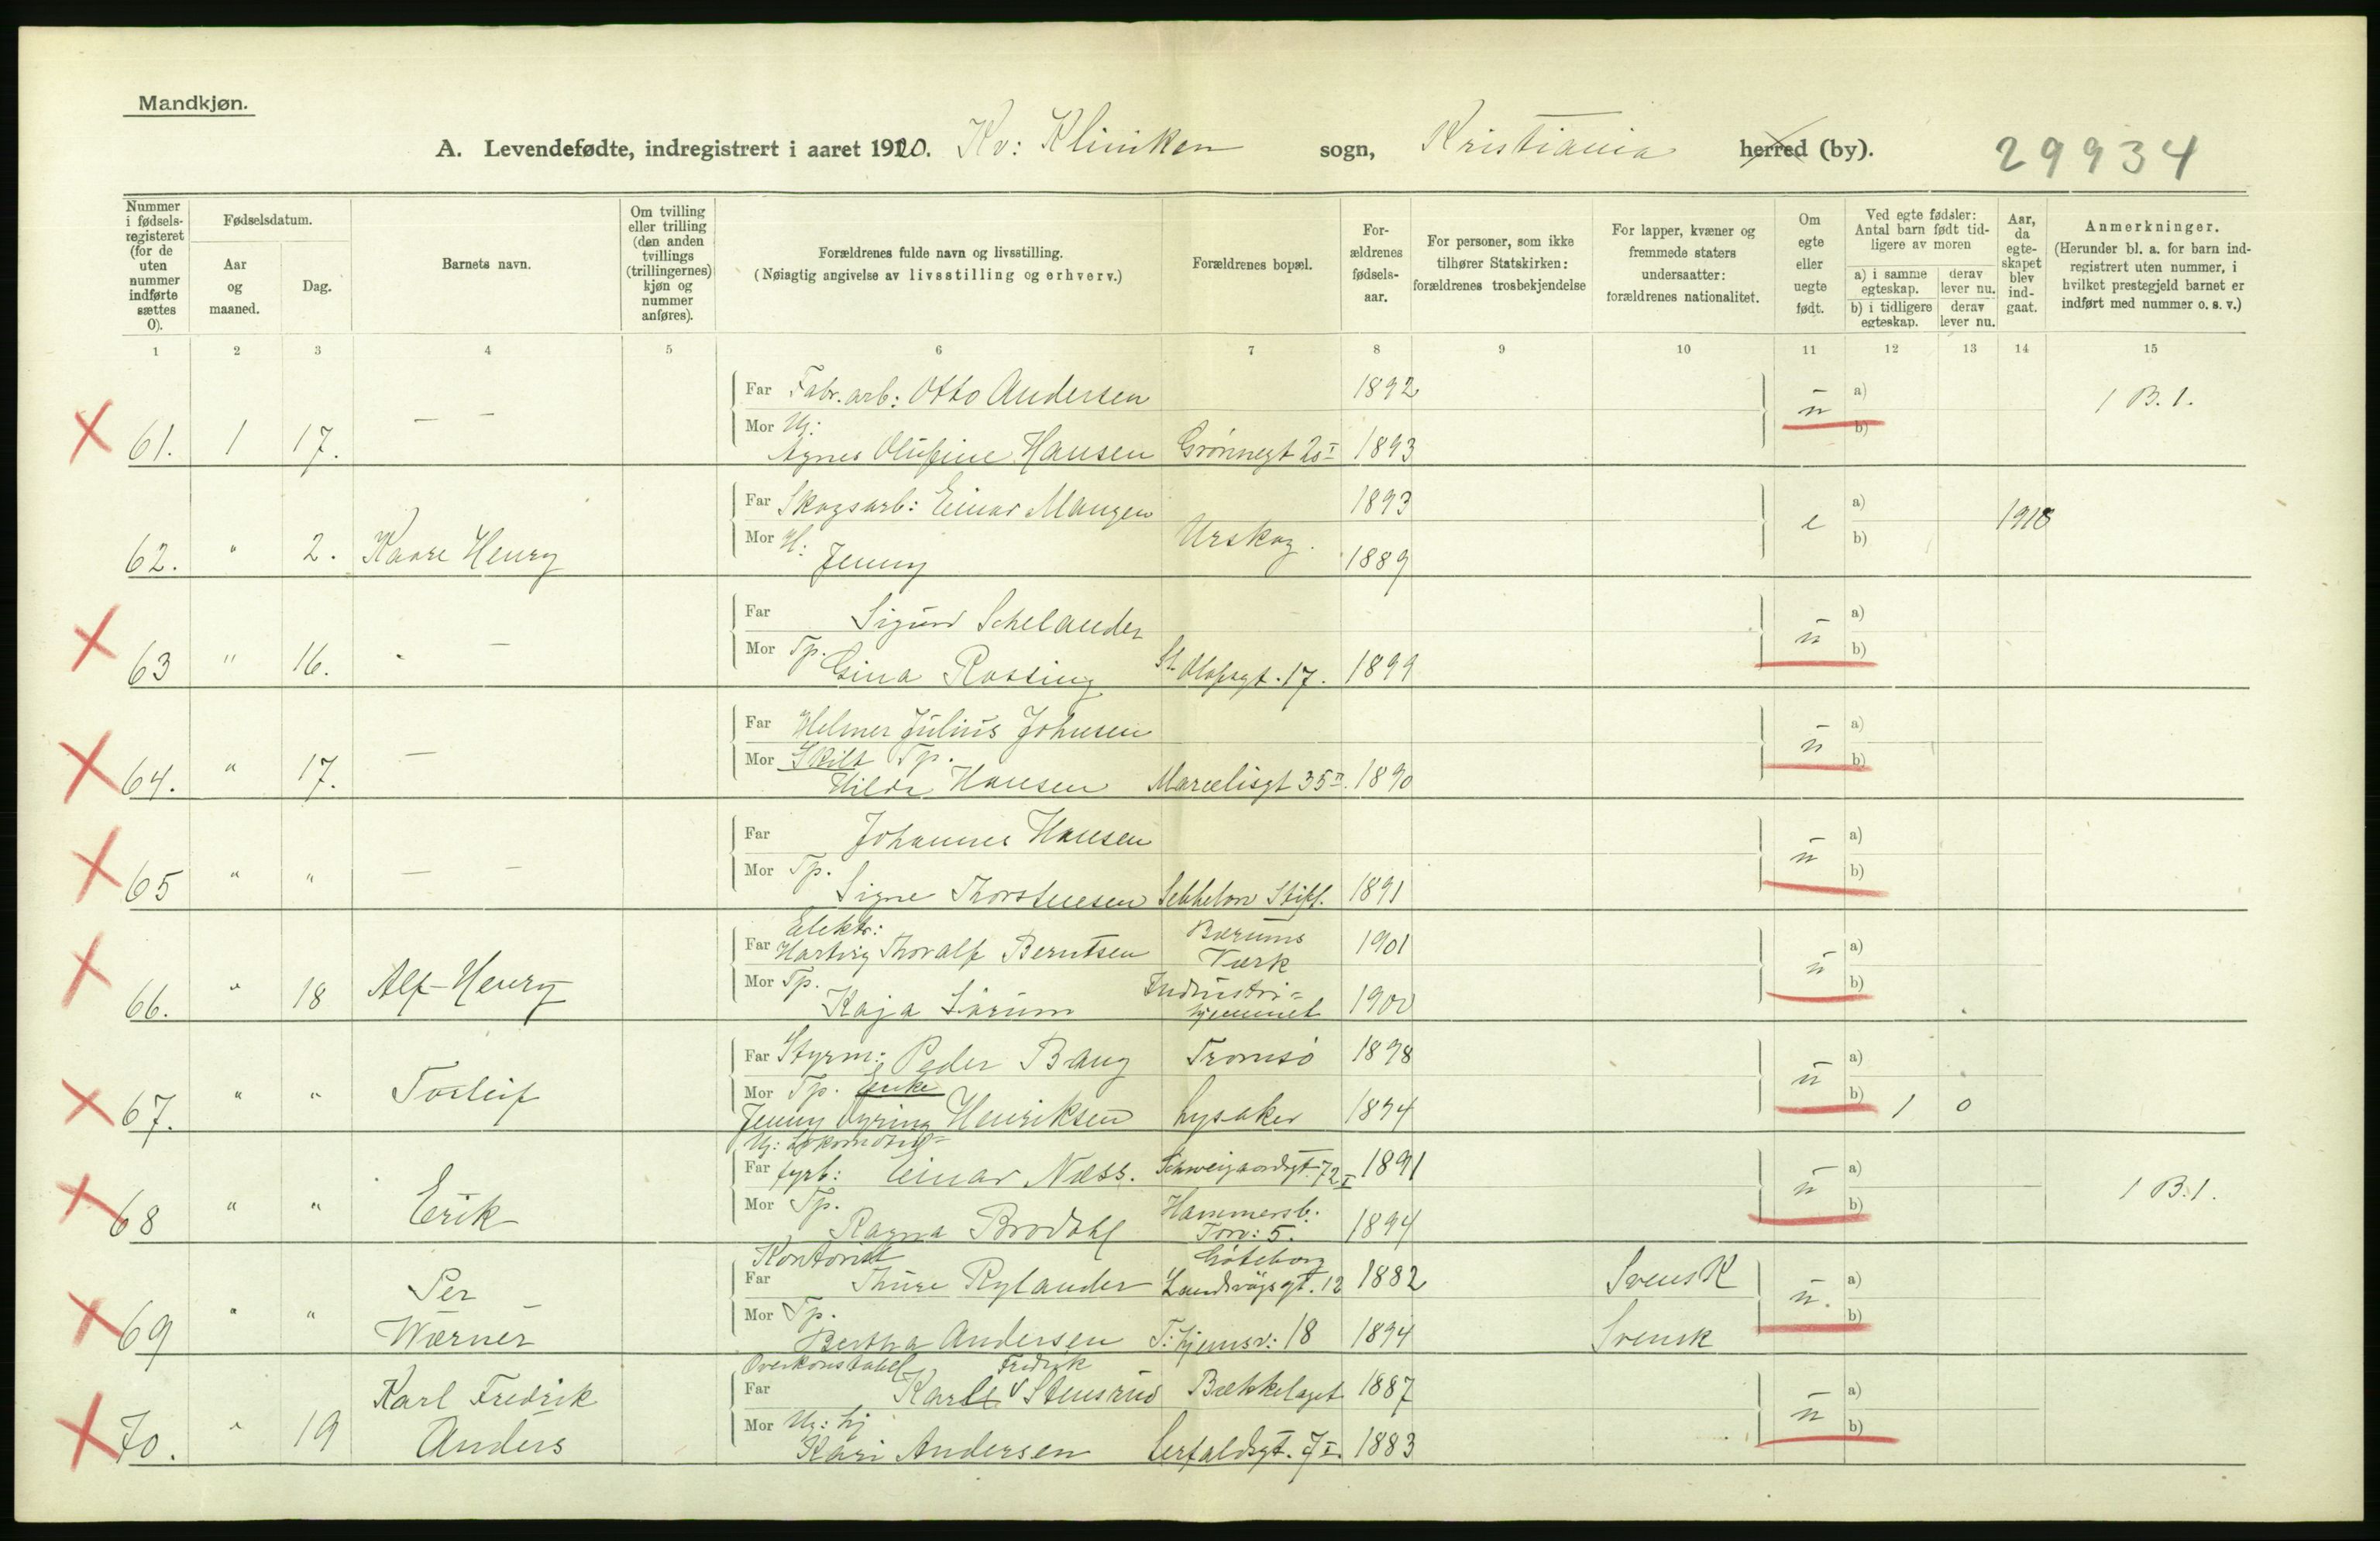 Mandkjøn.
A. Levendefødte, indregistrert i aaret 1920. Kv: Kliniken sogn, Kristiania herred (by). 29934
Nummer i fødsels-registeret (for de uten nummer indførte sættes 0).
Fødselsdatum.
Aar og maaned.
Dag.
Barnets navn.
Om tvilling eller trilling (den anden tvillings (trillingernes) kjøn og nummer anføres).
Forældrenes fulde navn og livsstilling.
(Nøiagtig angivelse av livsstilling og erhverv.)
Forældrenes bopæl.
For-ældrenes fødsels-aar.
For personer, som ikke tilhører Statskirken: forældrenes trosbekjendelse
For lapper, kvæner og fremmede staters undersaatter: forældrenes nationalitet.
Om egte eller uegte født.
Ved egte fødsler: Antal barn født tid-ligere av moren
a) i samme egteskap. derav lever nu.
b) i tidligere egteskap. derav lever nu.
Aar, da egte-skapet blev ind-gaat.
Anmerkninger.
(Herunder bl. a. for barn ind-registrert uten nummer, i hvilket prestegjeld barnet er indført med nummer o. s. v.)
1 2 3 4 5 6 7 8 9 10 11 12 13 14 15
Far Fabr.arb: Otto Andersen 1892 a) 1 B. 1.
61. 1 17. — — Mor Ug: Agnes Olufine Hansen Grønnegt 20 I 1893 u b)
Far Skogsarb: Einar Mangen 1893 a) 1918
62. " 2. Kaare Henry Mor H: Jenny Urskog. 1889 e b)
Far Sigurd Schelander a)
63 " 16. - — Mor Tp. Gina Rossing St. Olafsgt. 17. 1899 u b)
Far Helmer Julius Johnsen a)
64. " 17. — Mor Skilt Tp. Hilda Hansen Marcelisgt 35 II. 1890 u b)
Far Johannes Hansen a)
65 " " — — Mor Tp. Signe Thorstensen Stift. 1891 u b)
Far Elektr: Hartvig Thoralf Berntsen Bærums Værk 1901 a)
66. " 18 Alf-Henry Mor Tp. Kaja Sørum Industri=hjemmet 1900 u b)
Far Styrm: Peder Bang Tromsö 1898 a)
67. " " Torleif Mor Tp. Enke Jenny Henriksen Lysaker 1894 u b) 1 0
Far Ug: Lokomotiv=fyrb: Einar Næss. Schweigaardsgt. 72 I 1891 a) 1 B. 1.
68 " " Erik Mor Tp. Ragna Brodahl Hammersb: Torv: 5. 1894 u b)
Far Kontorist Thure Rylander Göteborg Landsvägsgt. 12 1882 Svensk a)
69 " " Per Werner Mor Tp. Bertha Andersen T: hjemsv: 18 1894 Svensk u. b)
Far Overkonstabel Karl Fredrik Stensrud Bækkelaget 1887 a)
70. " 19 Karl Fredrik Anders Mor Ug: Hj Kari Andersen 7 I. 1883 u b)